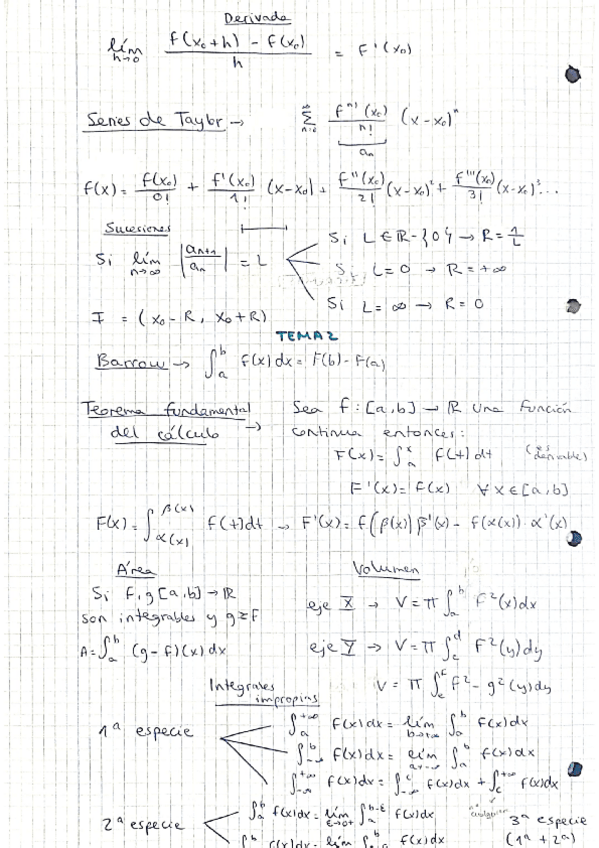 Derivada
lím h→0 f(x₀+h) - f(x₀) / h = F'(x₀)
Series de Taylor → ∞ Σ n=0 fⁿ⁾(x₀) / n! (x-x₀)ⁿ
aₙ
f(x) = f(x₀)/0! + f'(x₀)/1! (x-x₀) + f''(x₀)/2! (x-x₀)² + f'''(x₀)/3! (x-x₀)³...
Sucesiones
Si lím n→∞ |aₙ₊₁/aₙ| = L
Si L ∈ ℝ-{0} → R = 1/L
Si L = 0 → R = +∞
Si L = ∞ → R = 0
I = (x₀-R, x₀+R)
TEMA 2
Barrow → ∫ₐᵇ f(x)dx = F(b) - F(a)
Teorema fundamental del cálculo →
Sea f: [a,b] → ℝ una función
continua entonces:
F(x) = ∫ₐˣ f(t)dt (es derivable)
F'(x) = f(x) ∀x∈[a,b]
F(x) = ∫ α(x) β(x) f(t)dt → F'(x) = f(β(x))β'(x) - f(α(x))·α'(x)
Área
Si F,g [a,b] → ℝ
son integrables y g≥F
A = ∫ₐᵇ (g-f)(x)dx
Volumen
eje X → V = π ∫ₐᵇ F²(x)dx
eje Y → V = π ∫ c d F²(y)dy
V = π ∫ F² - g²(y)dy
Integrales impropias
1ª especie
∫ₐ+∞ f(x)dx = lím b→+∞ ∫ₐᵇ f(x)dx
∫-∞ᵇ f(x)dx = lím a→-∞ ∫ₐᵇ f(x)dx
∫-∞+∞ f(x)dx = ∫-∞ᶜ f(x)dx + ∫c+∞ f(x)dx
2ª especie
∫ₐᵇ f(x)dx = lím ε→0+ ∫ₐᵇ⁻ᵋ f(x)dx
∫ᵇ f(x)dx = lím ∫ᵇ f(x)dx
3ª especie
(1ª + 2ª)